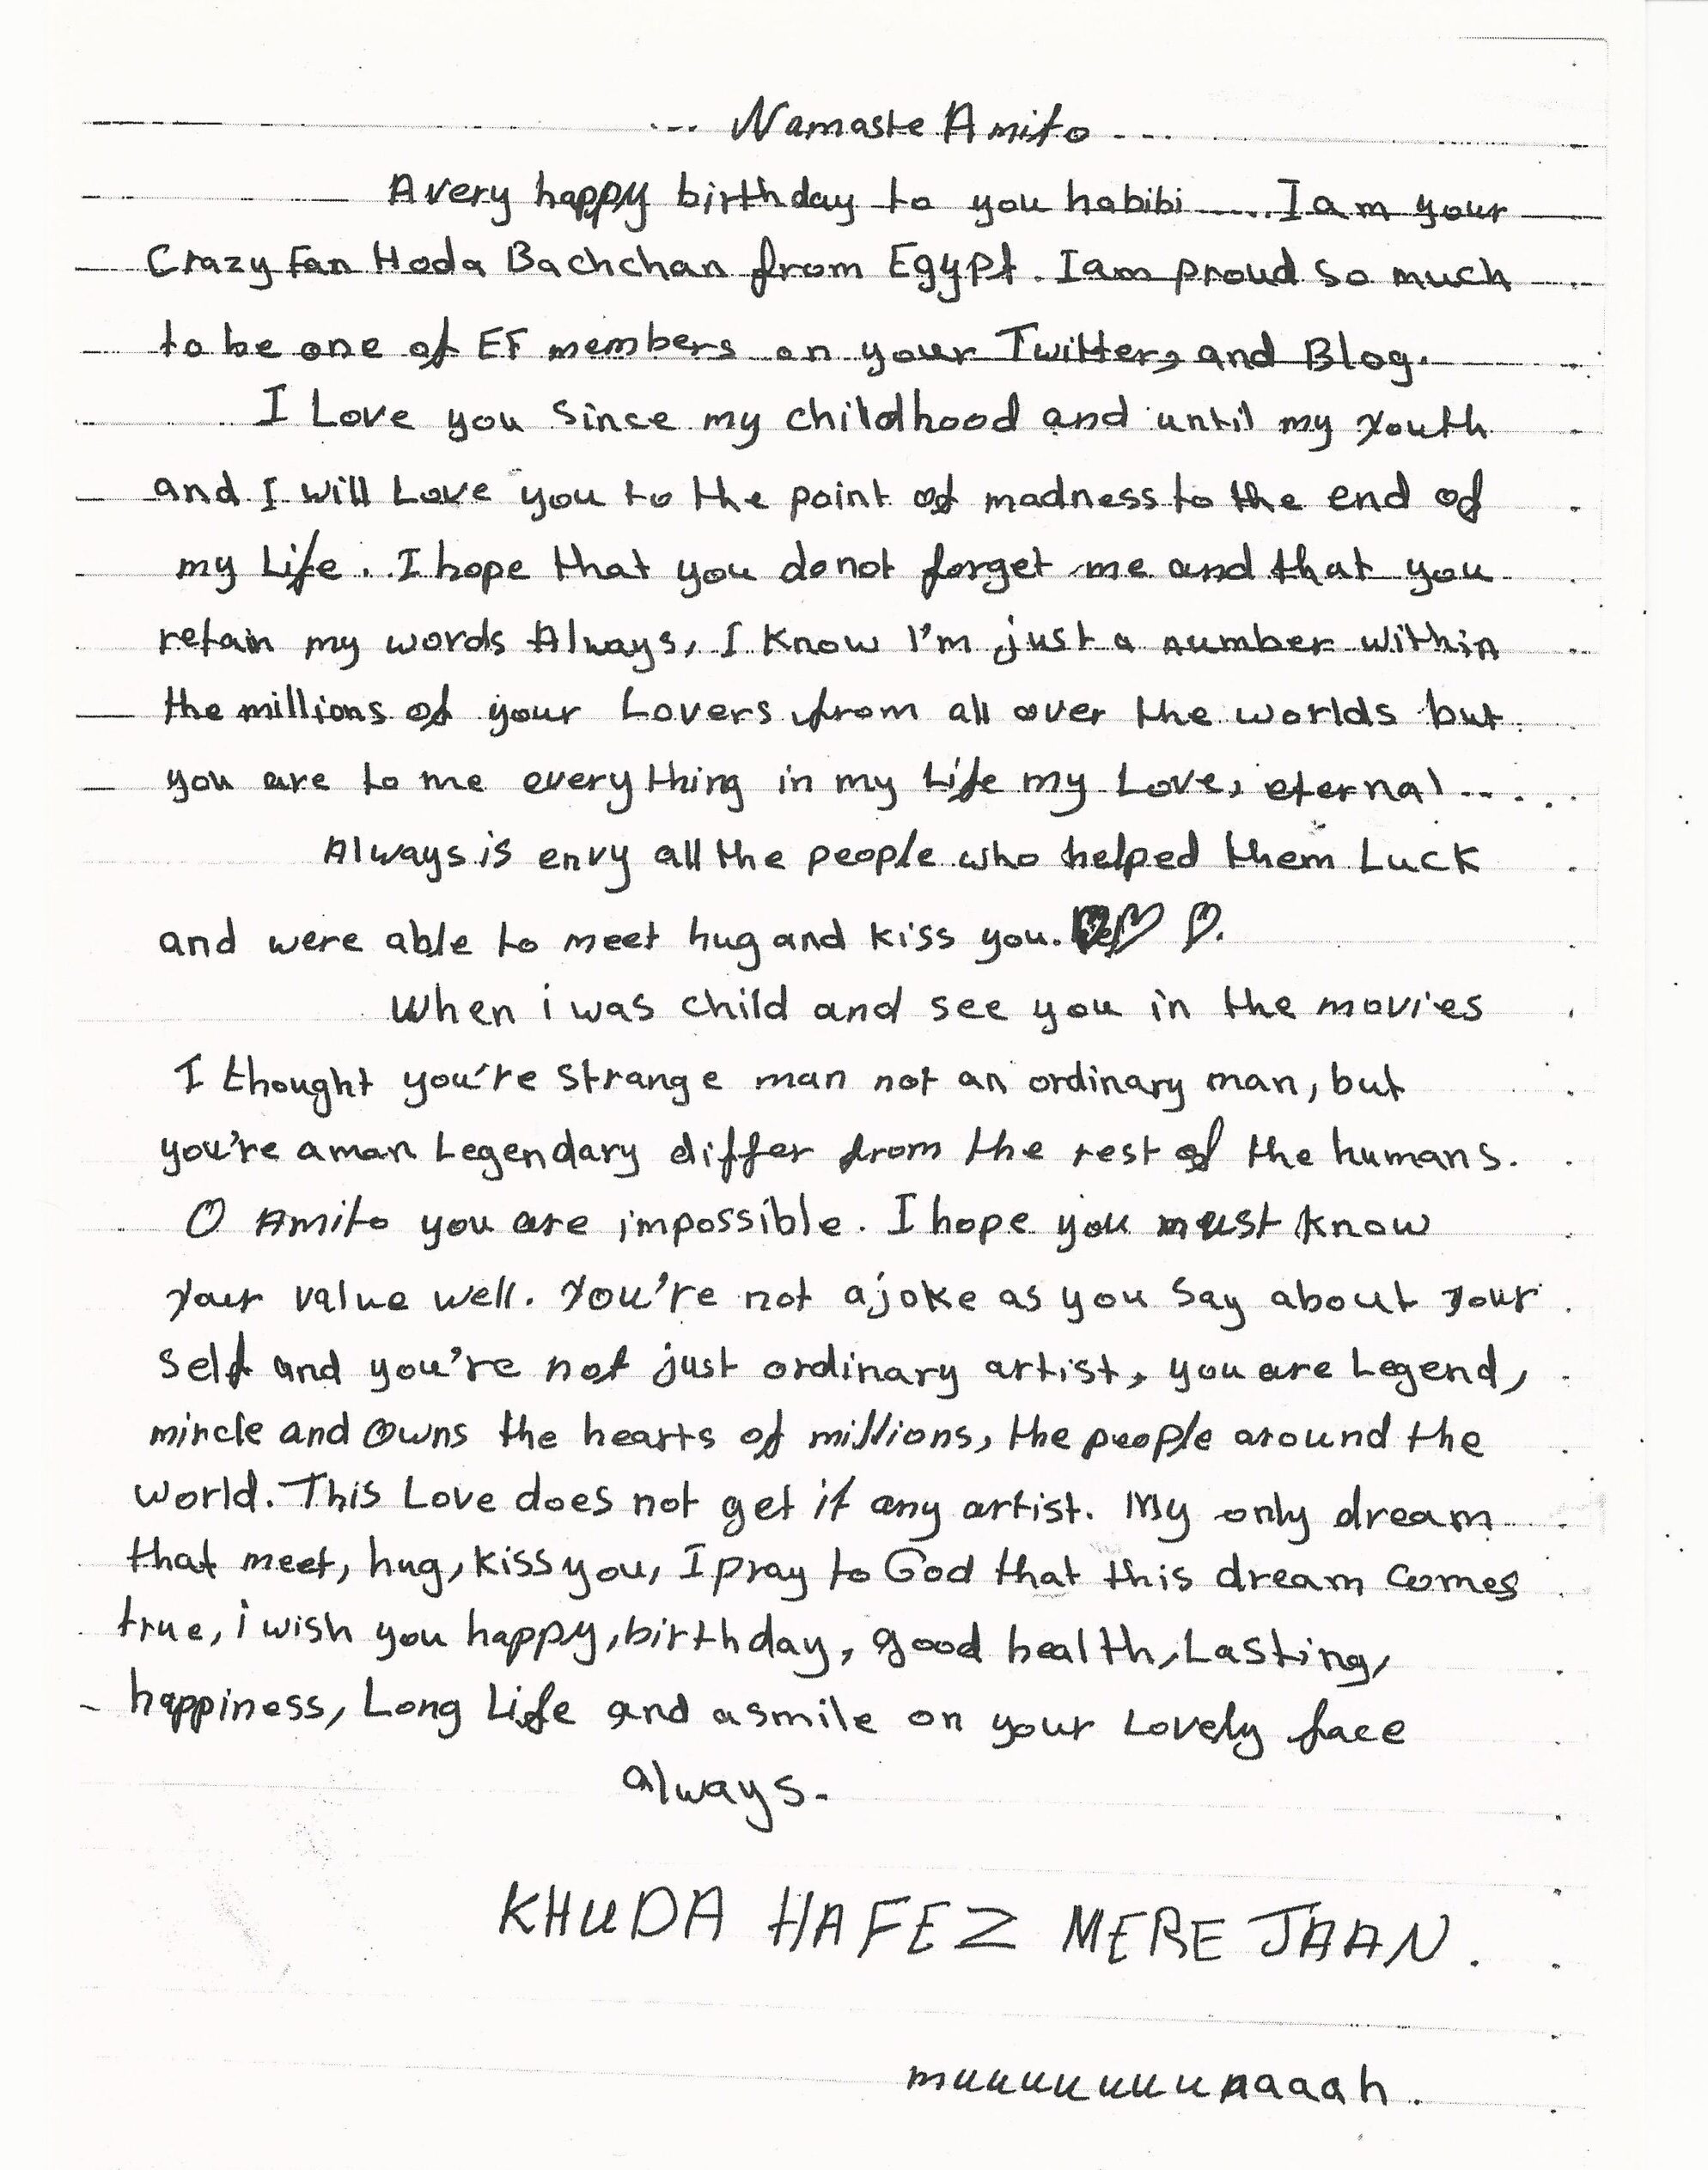 ... Namaste Amito ...
A very happy birthday to you habibi ..... I am your
Crazy Fan Hoda Bachchan from Egypt. I am proud so much
to be one of EF members on your Twitter, and Blog.
I Love you since my childhood and until my youth
and I will Love you to the point of madness to the end of
my Life. I hope that you donot forget me and that you
retain my words Always, I know I'm just a number within
the millions of your Lovers from all over the worlds but
you are to me everything in my Life my Love, eternal .....
Always is envy all the people who helped them Luck
and were able to meet hug and kiss you. ♡♡ ♡.
When i was child and see you in the movies
I thought you're strange man not an ordinary man, but
you're a man Legendary differ from the rest of the humans.
O Amito you are impossible. I hope you must know
your value well. You're not a joke as you say about your
self and you're not just ordinary artist, you are Legend,
mircle and Owns the hearts of millions, the people around the
world. This Love does not get it any artist. My only dream
that meet, hug, kiss you, I pray to God that this dream comes
true, i wish you happy, birthday, good health, Lasting,
happiness, Long Life and a smile on your Lovely face
always.
KHUDA HAFEZ MERE JAAN.
muuuuuuuuaaaah.